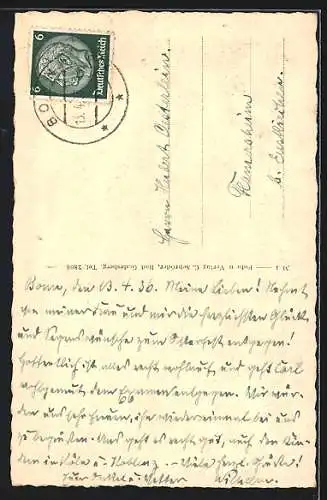 Deutsches Reich
6 6
BONN
Herrn Hubert
Flamersheim
b. Euskirchen.
M 1 — Foto u. Verlag C. Schröder, Bad Godesberg, Tel. 2804
Bonn, den 13.4.36. Meine Lieben! Nehmt
von meiner Frau und mir die herzlichsten Glück-
und Segenswünsche zum Osterfest entgegen!
Hoffentlich ist alles recht wohlauf und geht Carl
wohlgemut dem Examen entgegen. Wir wür-
den uns sehr freuen, ihn wieder einmal bei uns
zu begrüßen. Uns geht es recht gut, auch den Kin-
dern in Köln u. Koblenz. — Viele herzl. Grüße!
Euer Onkel u. Vetter